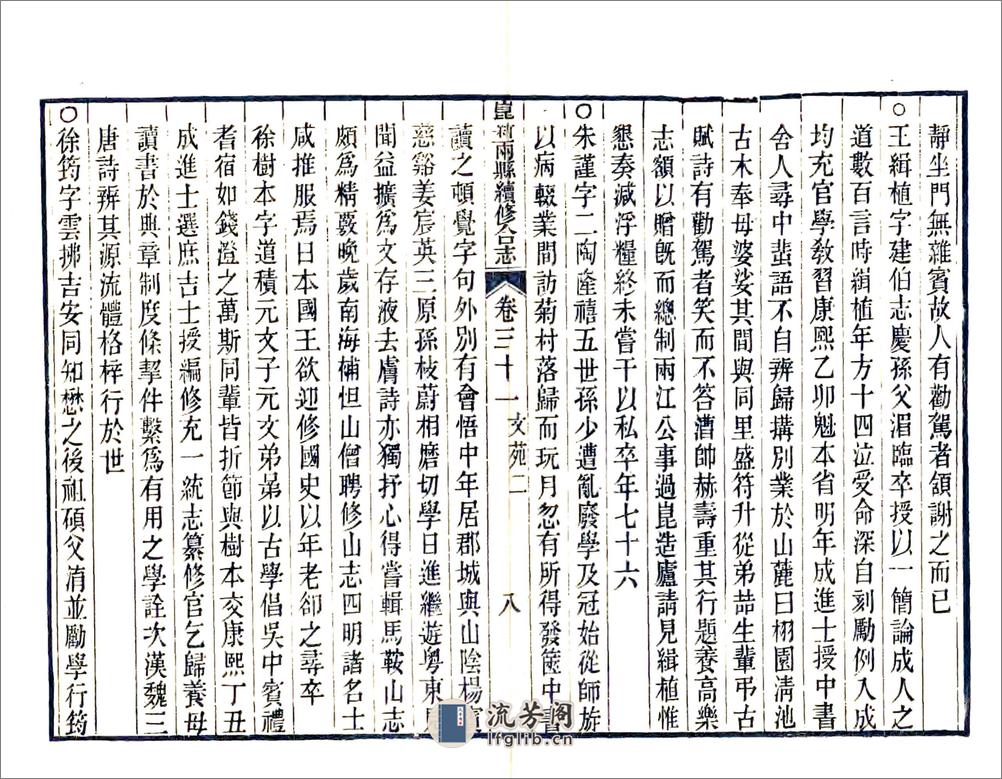 靜坐門無雜賓故人有勸駕者頷謝之而已
○王緝植字建伯志慶孫父湄臨卒授以一簡論成人之
道數百言時緝植年方十四泣受命深自刻勵例入成
均充官學敎習康熙乙卯魁本省明年成進士授中書
舍人尋中蜚語不自辨歸搆別業於山麓曰栩園淸池
古木奉母婆娑其間與同里盛符升從弟喆生輩弔古
賦詩有勸駕者笑而不答漕帥赫壽重其行題養高樂
志額以贈旣而總制兩江公事過崑造廬請見緝植惟
懇奏減浮糧終未嘗干以私卒年七十六
○朱謹字二陶隆禧五世孫少遭亂廢學及冠始從師游
以病輟業間訪菊村落歸而玩月忽有所得發篋中書
崑新兩縣續修合志 卷三十一 文苑二 八
讀之頓覺字句外別有會悟中年居郡城與山陰楊賓
慈谿姜宸英三原孫枝蔚相磨切學日進繼遊粵東
聞益擴爲文存液去膚詩亦獨抒心得嘗輯馬鞍山志
頗爲精覈晚歲南海補怛山僧聘修山志四明諸名士
咸推服焉日本國王欲迎修國史以年老卻之尋卒
徐樹本字道積元文子元文弟弟以古學倡吳中賓禮
耆宿如錢澄之萬斯同輩皆折節與樹本交康熙丁丑
成進士選庶吉士授編修充一統志纂修官乞歸養母
讀書於典章制度條挈件繫爲有用之學詮次漢魏三
唐詩辨其源流體格梓行於世
○徐筠字雲揥吉安同知懋之後祖碩父淯並勵學行筠
流芳阁
lfglib.cn